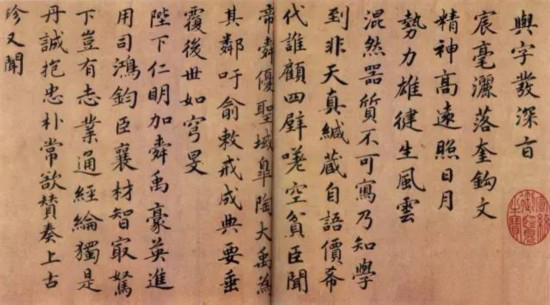 與字發深旨
宸毫灑落奎鈎文
精神高遠照日月
勢力雄健生風雲
混然器質不可寫乃知學
到非天真緘藏自語價希
代誰顧四壁嗟空貧臣聞
帝舜優聖域皐陶大禹為
其鄰吁俞敕戒成典要垂
覆後世如穹旻
陛下仁明加舜禹豪英進
用司鴻鈞臣襄材智冣駑
下豈有志業通經綸獨是
丹誠抱忠朴常欲贊奏上古
珍又聞